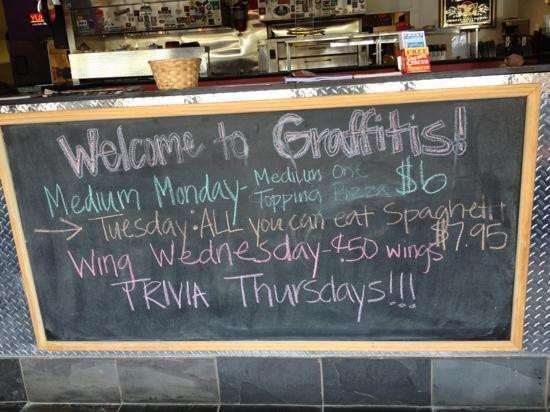 Welcome to Graffitis!
Medium Monday - Medium One Topping Pizza $6
→ Tuesday: ALL you can eat Spaghetti $7.95
Wing Wednesday - $.50 wings
TRIVIA Thursdays!!!
FREE
CIRCUS
TICKETS